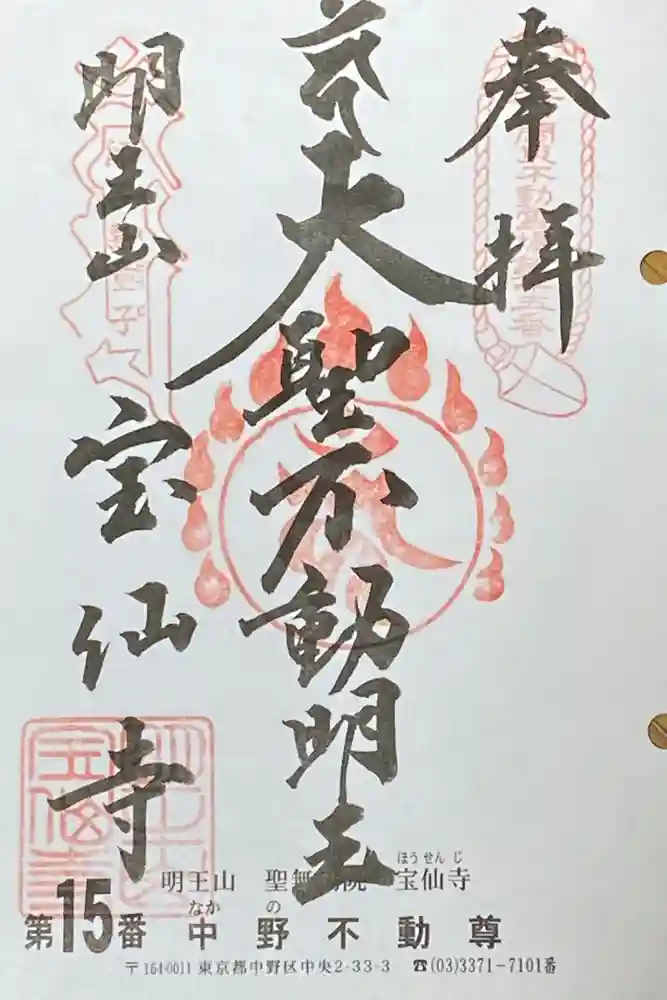 奉拝
大聖不動明王
明王山
宝仙寺
ほうせんじ
明王山 聖無動院 宝仙寺
なかの
第15番 中野不動尊
〒164-0011 東京都中野区中央2-33-3 ☎(03)3371-7101番